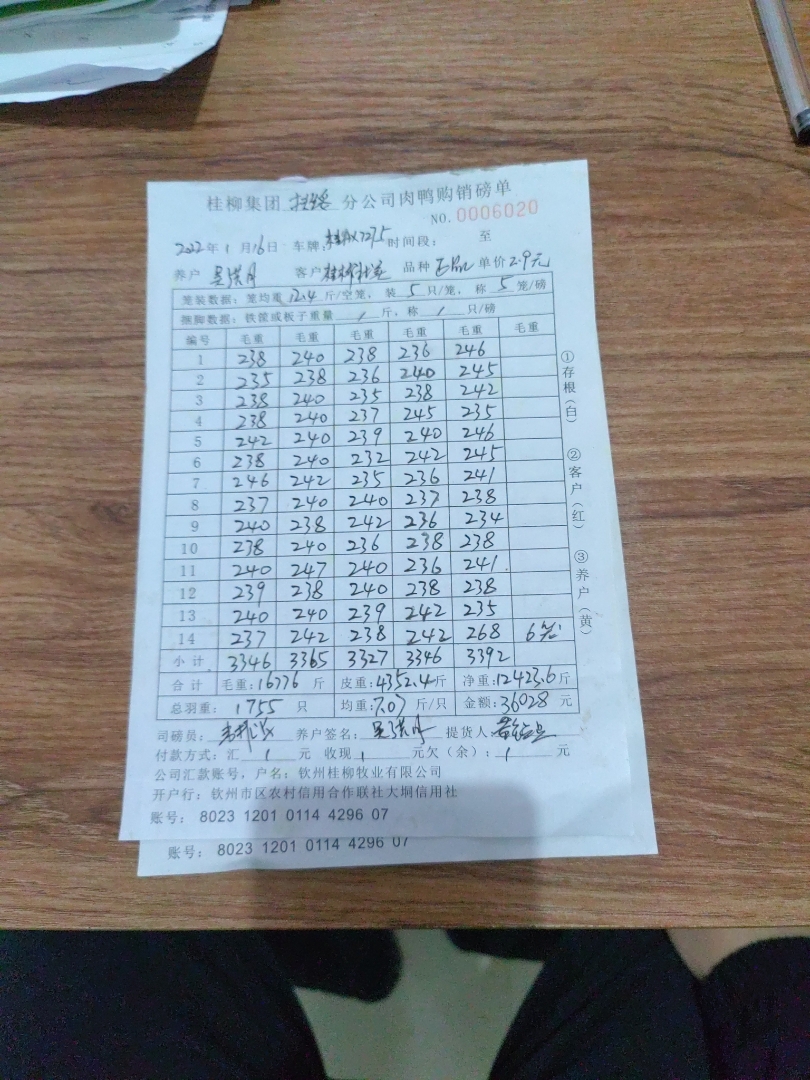 桂柳集团 分公司肉鸭购销磅单
NO.0006020
2022年1月16日 车牌: 7275 时间段: 至
养户 吴洪月 客户 品种 正品 单价2.9元
笼装数据: 笼均重12.4斤/空笼, 装5只/笼, 称5笼/磅
捆脚数据: 铁筐或板子重量/斤, 称/只/磅
编号 毛重 毛重 毛重 毛重 毛重 毛重
1 238 240 238 236 246
2 235 238 236 240 245
3 238 240 235 238 242
4 238 240 237 245 235
5 242 240 239 240 246
6 238 240 232 242 245
7 246 242 235 236 241
8 237 240 240 237 238
9 240 238 242 236 234
10 238 240 236 238 238
11 240 247 240 236 241
12 239 238 240 238 238
13 240 240 239 242 235
14 237 242 238 242 268 6笼
小计 3346 3365 3327 3346 3392
合计 毛重:16776斤 皮重:4352.4斤 净重:12423.6斤
总羽重: 1755只 均重:7.07斤/只 金额:36028元
司磅员: 养户签名: 吴洪月 提货人:
付款方式: 汇/元 收现/元欠(余):/元
公司汇款账号, 户名: 钦州桂柳牧业有限公司
开户行: 钦州市区农村信用合作联社大垌信用社
账号: 8023 1201 0114 4296 07
账号: 8023 1201 0114 4296 07
①存根(白) ②客户(红) ③养户(黄)